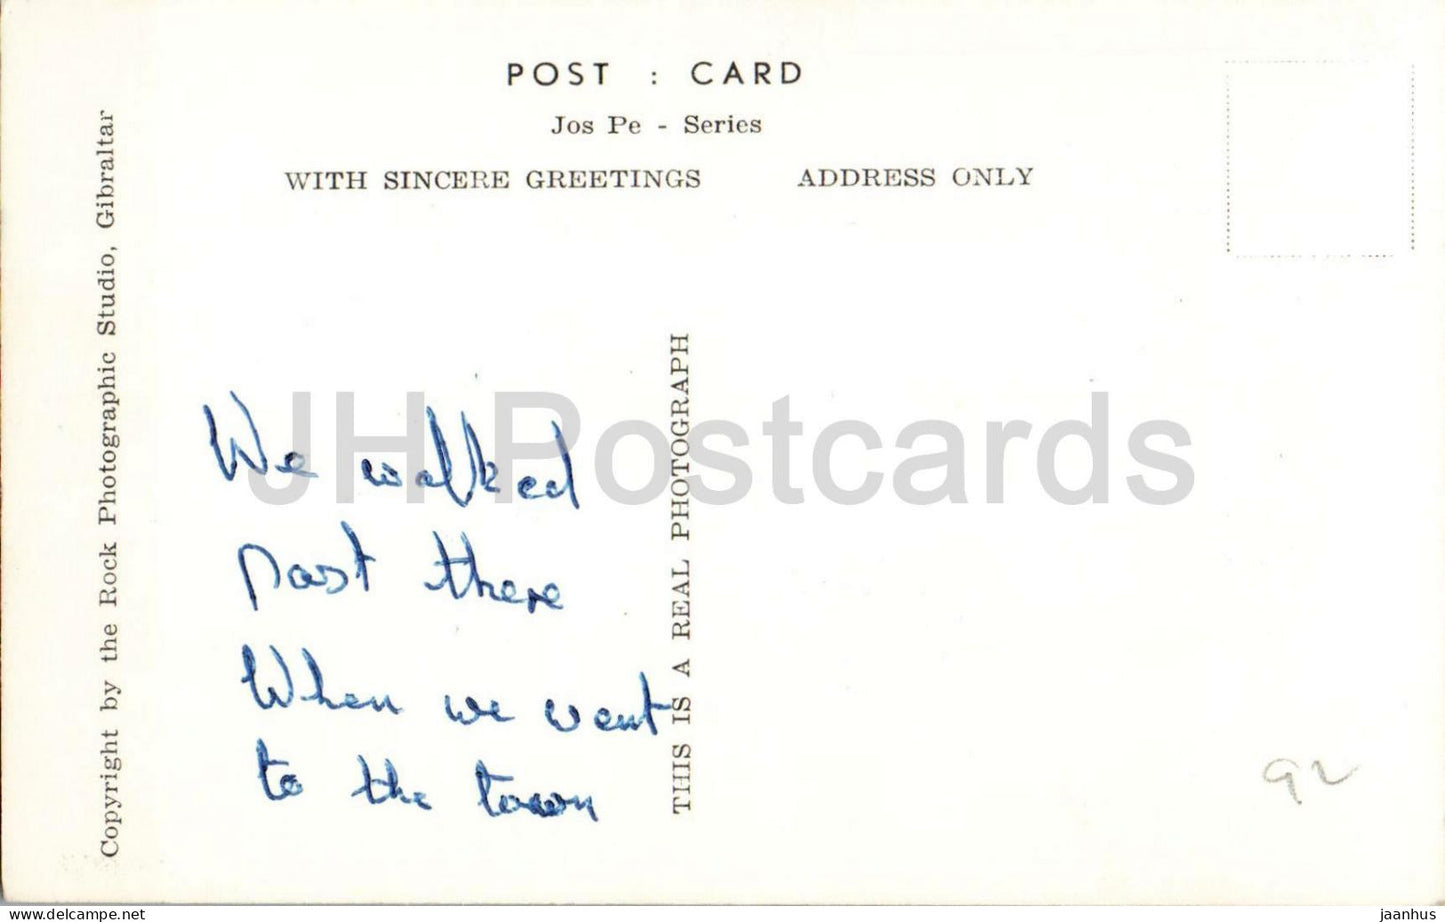 POST : CARD
Jos Pe - Series
WITH SINCERE GREETINGS ADDRESS ONLY
Copyright by the Rock Photographic Studio, Gibraltar
THIS IS A REAL PHOTOGRAPH
JH Postcards
We walked
past there
When we went
to the town
92
www.delcampe.net
jaanhus